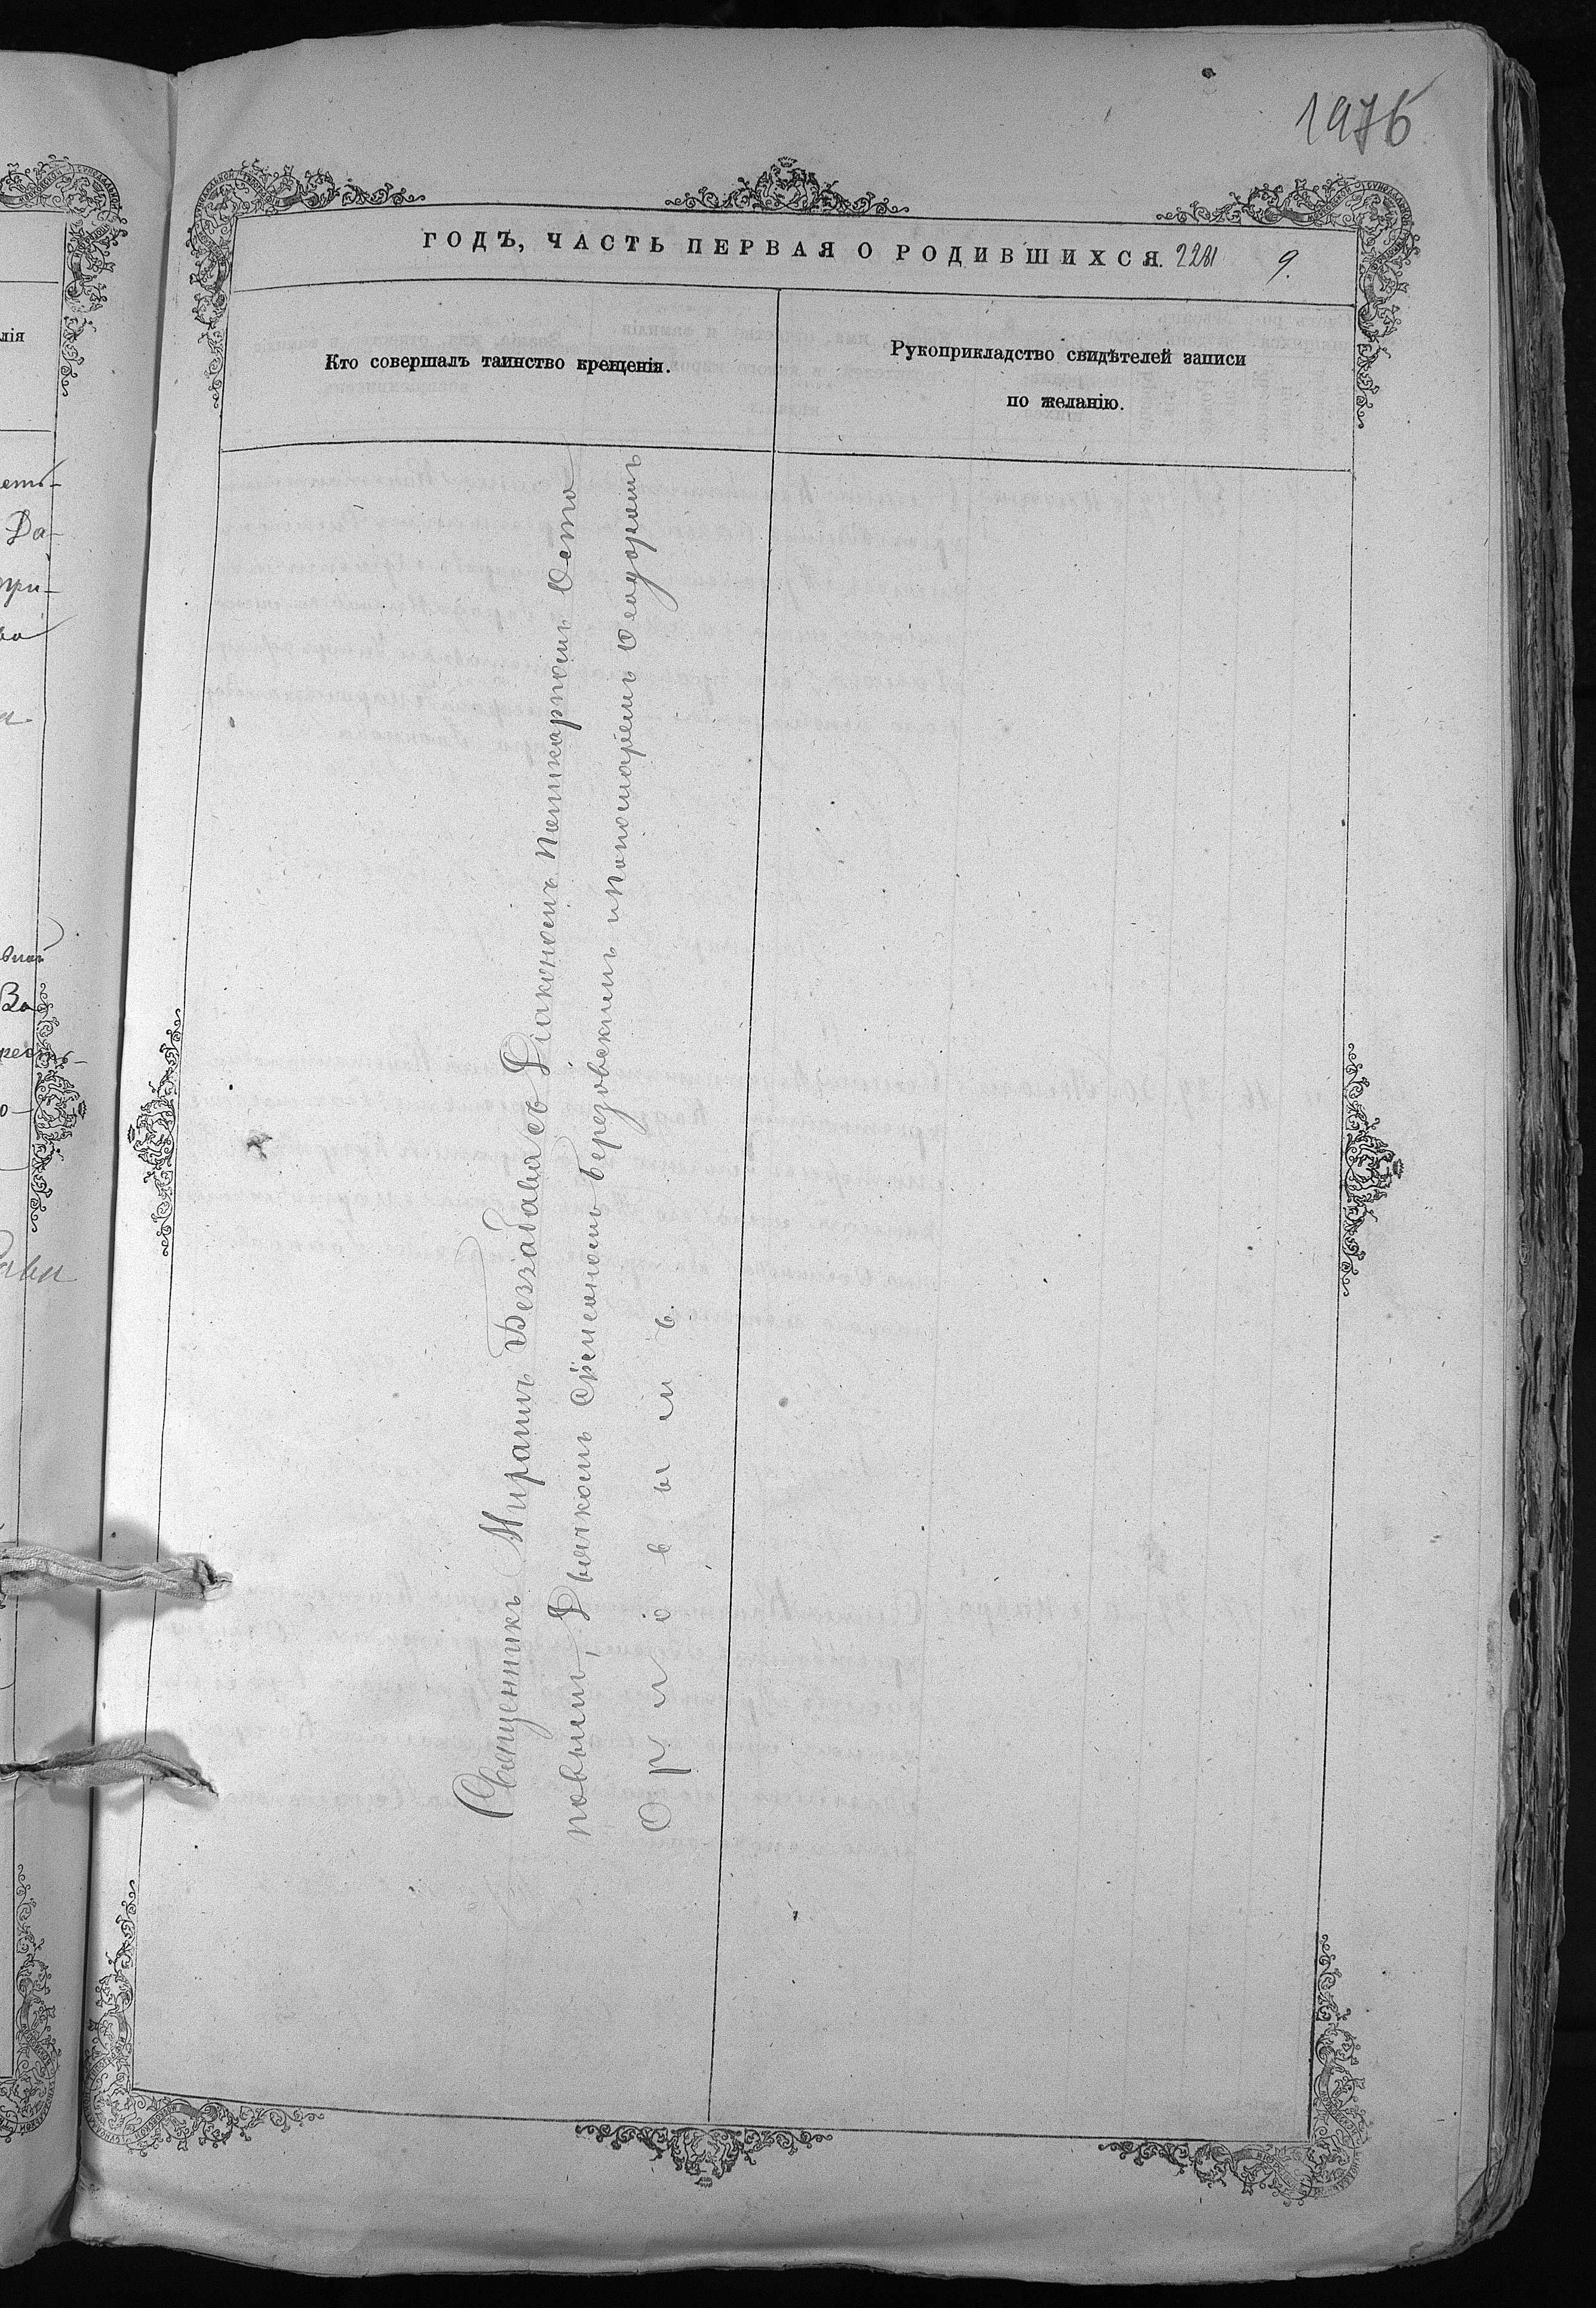 1976
ГОДЪ, ЧАСТЬ ПЕРВАЯ О РОДИВШИХСЯ. 2281 9.
Кто совершалъ таинство крещенія.
Рукоприкладство свидѣтелей записи
по желанію.
Священникъ Миронъ Беззабава съ Діакономъ Поликарпомъ Осто
повымъ, Дьячкомъ Симеономъ Березовскимъ и Пономаремъ Ѳеодоромъ
Орловымъ.